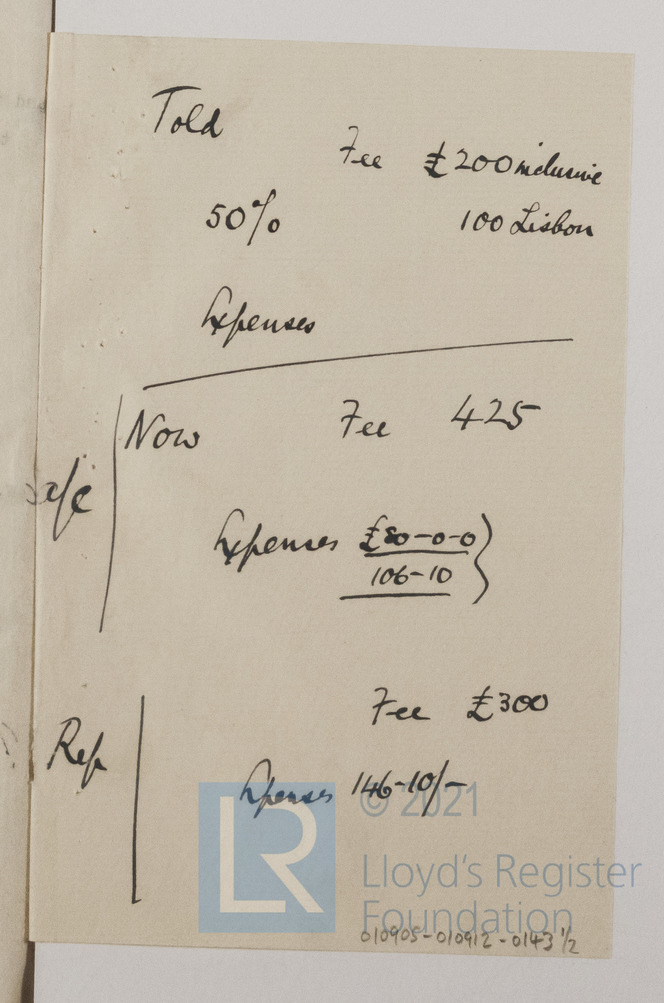 Told
Fee £200 inclusive
50% 100 Lisbon
Expenses
Now Fee 425
a/c
Expenses £80-0-0
106-10
Fee £300
Rep
Expenses 146-10/-
LR © 2021
Lloyd's Register
Foundation
010905-010912-0143 1/2